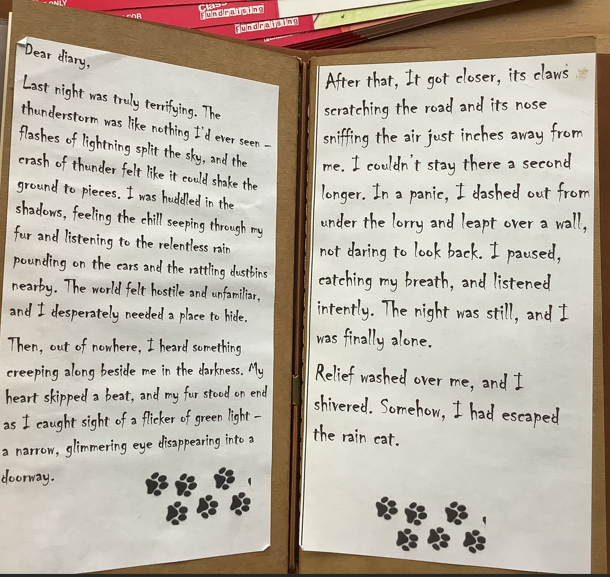 ONLY
FOR
Class
fundraising
fundraising
Dear diary,
Last night was truly terrifying. The
thunderstorm was like nothing I'd ever seen –
flashes of lightning split the sky, and the
crash of thunder felt like it could shake the
ground to pieces. I was huddled in the
shadows, feeling the chill seeping through my
fur and listening to the relentless rain
pounding on the cars and the rattling dustbins
nearby. The world felt hostile and unfamiliar,
and I desperately needed a place to hide.
Then, out of nowhere, I heard something
creeping along beside me in the darkness. My
heart skipped a beat, and my fur stood on end
as I caught sight of a flicker of green light –
a narrow, glimmering eye disappearing into a
doorway.
After that, It got closer, its claws
scratching the road and its nose
sniffing the air just inches away from
me. I couldn't stay there a second
longer. In a panic, I dashed out from
under the lorry and leapt over a wall,
not daring to look back. I paused,
catching my breath, and listened
intently. The night was still, and I
was finally alone.
Relief washed over me, and I
shivered. Somehow, I had escaped
the rain cat.